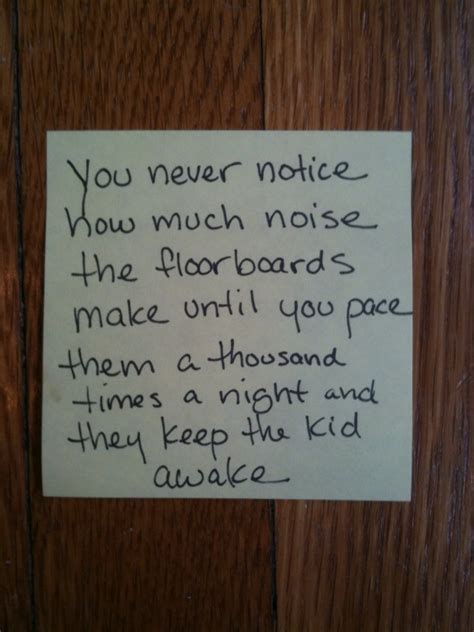 You never notice
how much noise
the floorboards
make until you pace
them a thousand
times a night and
they keep the kid
awake